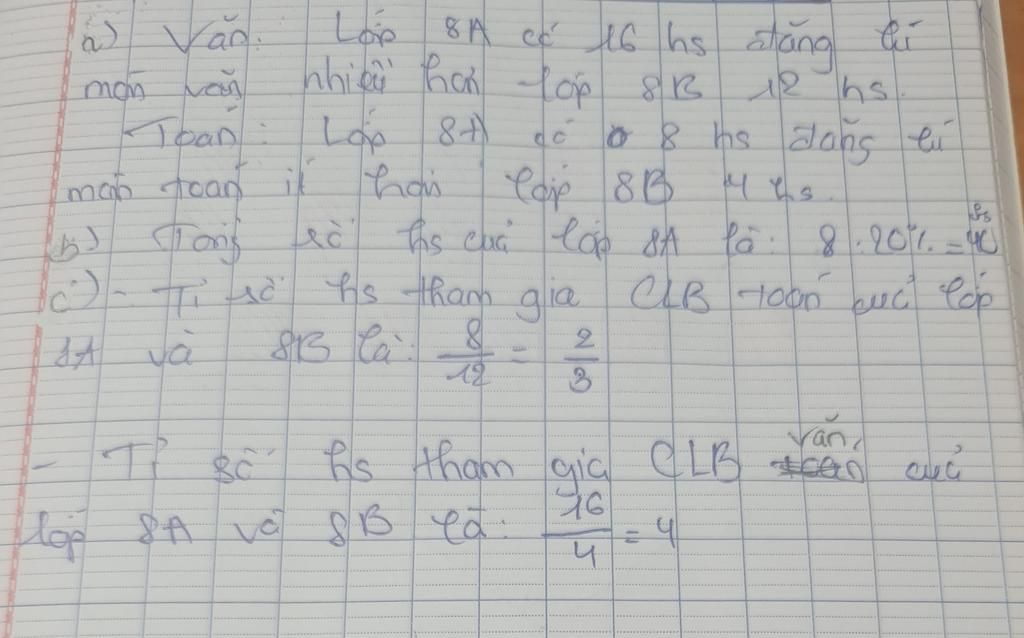 a) Văn: Lớp 8A có 16 hs đăng kí
môn văn nhiều hơn lớp 8B 12 hs.
Toán: Lớp 8A có 8 hs đăng kí
môn toán ít hơn lớp 8B 4 hs.
b) Tổng số hs của lớp 8A là: 8 : 20% = 40 hs
c) - Tỉ số hs tham gia CLB toán của lớp
8A và 8B là: 8/12 = 2/3
- Tỉ số hs tham gia CLB văn của
lớp 8A và 8B là: 16/4 = 4